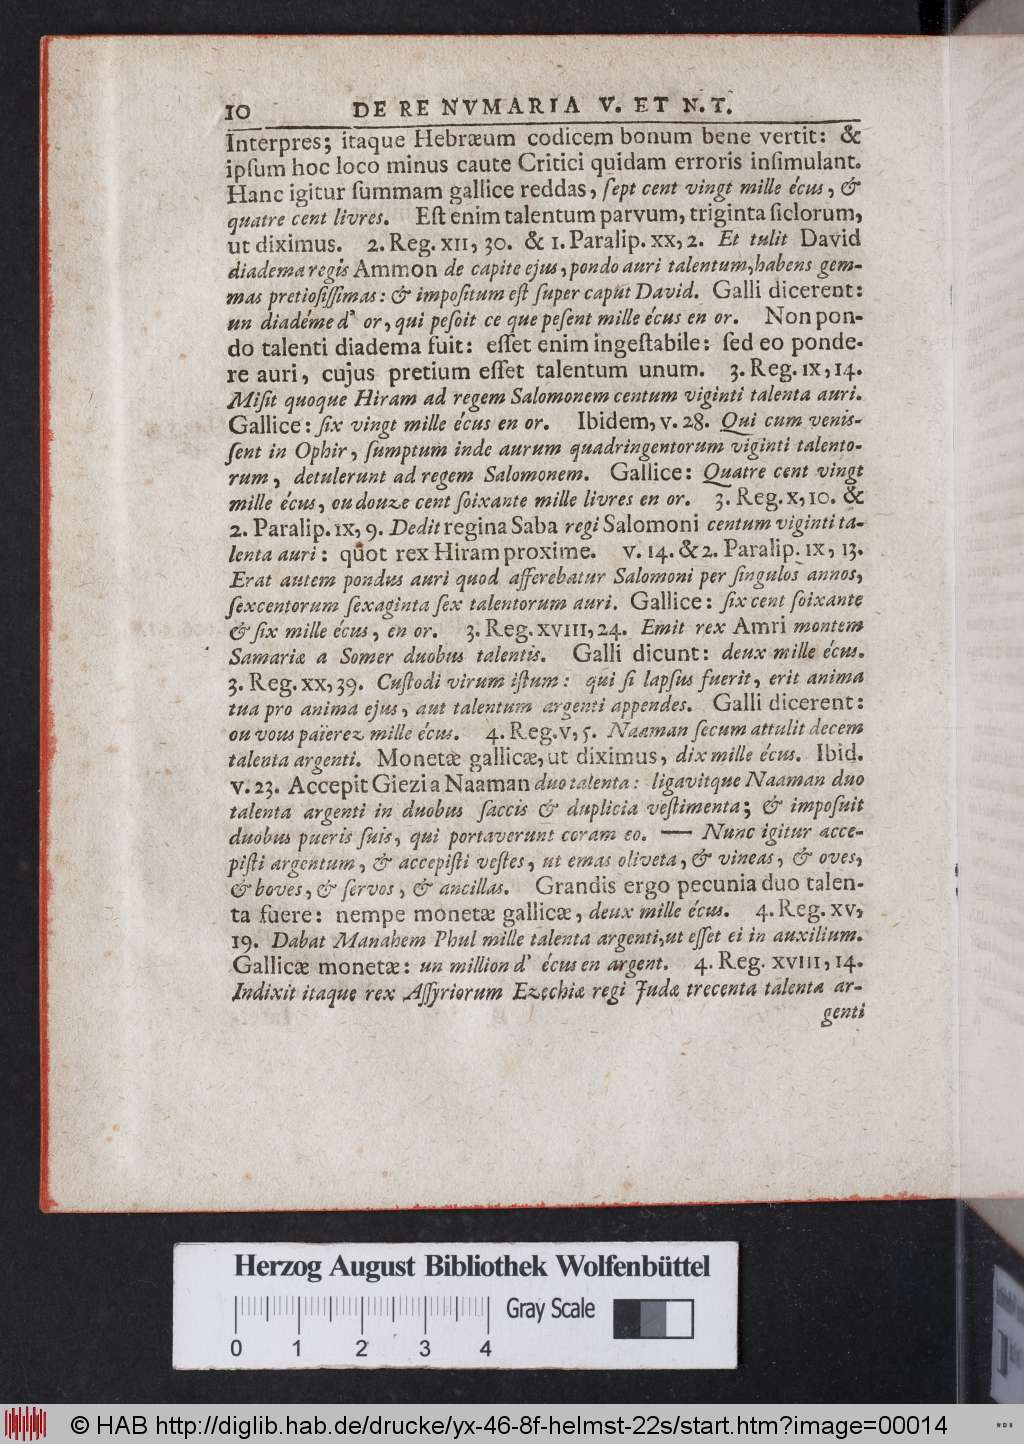 10 DE RE NVMARIA V. ET N. T.
Interpres; itaque Hebræum codicem bonum bene vertit: &
ipſum hoc loco minus caute Critici quidam erroris inſimulant.
Hanc igitur ſummam gallice reddas, ſept cent vingt mille écus, &
quatre cent livres. Eſt enim talentum parvum, triginta ſiclorum,
ut diximus. 2. Reg. XII, 30. & 1. Paralip. XX, 2. Et tulit David
diadema regis Ammon de capite ejus, pondo auri talentum, habens gem-
mas pretioſiſſimas: & impoſitum eſt ſuper caput David. Galli dicerent:
un diadéme d' or, qui peſoit ce que peſent mille écus en or. Non pon-
do talenti diadema fuit: eſſet enim ingeſtabile: ſed eo ponde-
re auri, cujus pretium eſſet talentum unum. 3. Reg. IX, 14.
Miſit quoque Hiram ad regem Salomonem centum viginti talenta auri.
Gallice: ſix vingt mille écus en or. Ibidem, v. 28. Qui cum veniſ-
ſent in Ophir, ſumptum inde aurum quadringentorum viginti talento-
rum, detulerunt ad regem Salomonem. Gallice: Quatre cent vingt
mille écus, ou douze cent ſoixante mille livres en or. 3. Reg. X, 10. &
2. Paralip. IX, 9. Dedit regina Saba regi Salomoni centum viginti ta-
lenta auri: quot rex Hiram proxime. v. 14. & 2. Paralip. IX, 13.
Erat autem pondus auri quod afferebatur Salomoni per ſingulos annos,
ſexcentorum ſexaginta ſex talentorum auri. Gallice: ſix cent ſoixante
& ſix mille écus, en or. 3. Reg. XVIII, 24. Emit rex Amri montem
Samariæ a Somer duobus talentis. Galli dicunt: deux mille écus.
3. Reg. XX, 39. Cuſtodi virum iſtum: qui ſi lapſus fuerit, erit anima
tua pro anima ejus, aut talentum argenti appendes. Galli dicerent:
ou vous païerez mille écus. 4. Reg. V, 5. Naaman ſecum attulit decem
talenta argenti. Monetæ gallicæ, ut diximus, dix mille écus. Ibid.
v. 23. Accepit Giezi a Naaman duo talenta: ligavitque Naaman duo
talenta argenti in duobus ſaccis & duplicia veſtimenta; & impoſuit
duobus pueris ſuis, qui portaverunt coram eo. — Nunc igitur acce-
piſti argentum, & accepiſti veſtes, ut emas oliveta, & vineas, & oves,
& boves, & ſervos, & ancillas. Grandis ergo pecunia duo talen-
ta fuere: nempe monetæ gallicæ, deux mille écus. 4. Reg. XV,
19. Dabat Manahem Phul mille talenta argenti, ut eſſet ei in auxilium.
Gallicæ monetæ: un million d' écus en argent. 4. Reg. XVIII, 14.
Indixit itaque rex Aſſyriorum Ezechiæ regi Judæ trecenta talenta ar-
genti
Herzog August Bibliothek Wolfenbüttel
Gray Scale
0 1 2 3 4
© HAB http://diglib.hab.de/drucke/yx-46-8f-helmst-22s/start.htm?image=00014